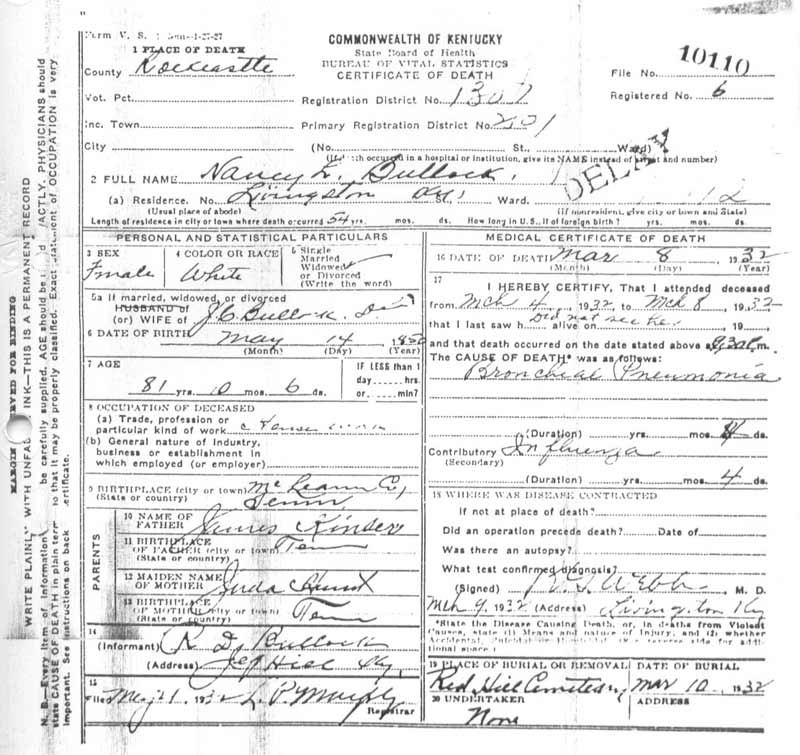 Form V. S. 1 1-27-27
COMMONWEALTH OF KENTUCKY
State Board of Health
BUREAU OF VITAL STATISTICS
CERTIFICATE OF DEATH
1 PLACE OF DEATH
County Rockcastle
File No. 10110
Vot. Pct.
Registration District No. 1307
Registered No. 6
Inc. Town
Primary Registration District No. 2701
City (No. St., Ward)
(If death occurred in a hospital or institution, give its NAME instead of street and number)
DELAY
2 FULL NAME Nancy L. Bullock
(a) Residence. No. Livingston Ward.
(Usual place of abode) (If nonresident, give city or town and State)
Length of residence in city or town where death occurred 54 yrs. mos. ds. How long in U. S., if of foreign birth? yrs. mos. ds.
PERSONAL AND STATISTICAL PARTICULARS
3 SEX
Female
4 COLOR OR RACE
White
5 Single
Married
Widowed
or Divorced
(Write the word)
5a If married, widowed, or divorced
HUSBAND of
(or) WIFE of J. C. Bullock
6 DATE OF BIRTH May 14
(Month) (Day) (Year)
7 AGE
IF LESS than 1
day hrs.
or min?
81 yrs. 10 mos. 6 ds.
8 OCCUPATION OF DECEASED
(a) Trade, profession or
particular kind of work
(b) General nature of Industry,
business or establishment in
which employed (or employer)
9 BIRTHPLACE (city or town) Co,
(State or country) Tenn
PARENTS
10 NAME OF
FATHER James Kinser
11 BIRTHPLACE
OF FATHER (city or town) Ten
(State or country)
12 MAIDEN NAME
OF MOTHER Juda Hunt
13 BIRTHPLACE
OF MOTHER (city or town) Ten
(State or country)
14
(Informant) R D. Bullock
(Address) Ky.
15
Filed 1932 L. P. Murphy
Registrar
MEDICAL CERTIFICATE OF DEATH
16 DATE OF DEATH Mar 8 1932
(Month) (Day) (Year)
17
I HEREBY CERTIFY, That I attended deceased
from Mch 4, 1932, to Mch 8, 1932
that I last saw h alive on Did not see her, 19
and that death occurred on the date stated above at 9,30 m.
The CAUSE OF DEATH* was as follows:
Bronchial Pneumonia
(Duration) yrs. mos. 4 ds.
Contributory Influenza
(Secondary)
(Duration) yrs. mos. 4 ds.
18 WHERE WAS DISEASE CONTRACTED
If not at place of death?
Did an operation precede death? Date of
Was there an autopsy?
What test confirmed diagnosis?
(Signed) Webb M. D.
Mch 9, 1932 (Address) Livingston Ky
*State the Disease Causing Death, or, in deaths from Violent
Causes, state (1) Means and nature of Injury, and (2) whether
Accidental, Suicidal or Homicidal. (See reverse side for addi-
tional space.)
19 PLACE OF BURIAL OR REMOVAL
Red Hill Cemetery
DATE OF BURIAL
Mar 10 1932
20 UNDERTAKER
None
ADDRESS
MARGIN RESERVED FOR BINDING
WRITE PLAINLY WITH UNFADING INK—THIS IS A PERMANENT RECORD
N. B.—Every item of information should be carefully supplied. AGE should be stated EXACTLY. PHYSICIANS should
state CAUSE OF DEATH in plain terms so that it may be properly classified. Exact statement of OCCUPATION is very
important. See instructions on back of certificate.